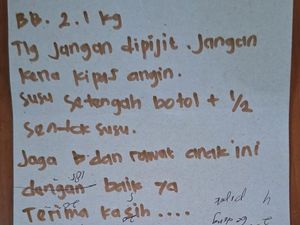 BB. 2.1 kg
Tlg Jangan dipijit. Jangan
kena kipas angin.
susu setengah botol + 1/2
sendok susu.
Jaga dan rawat anak ini
dengan baik ya
Terima kasih ....